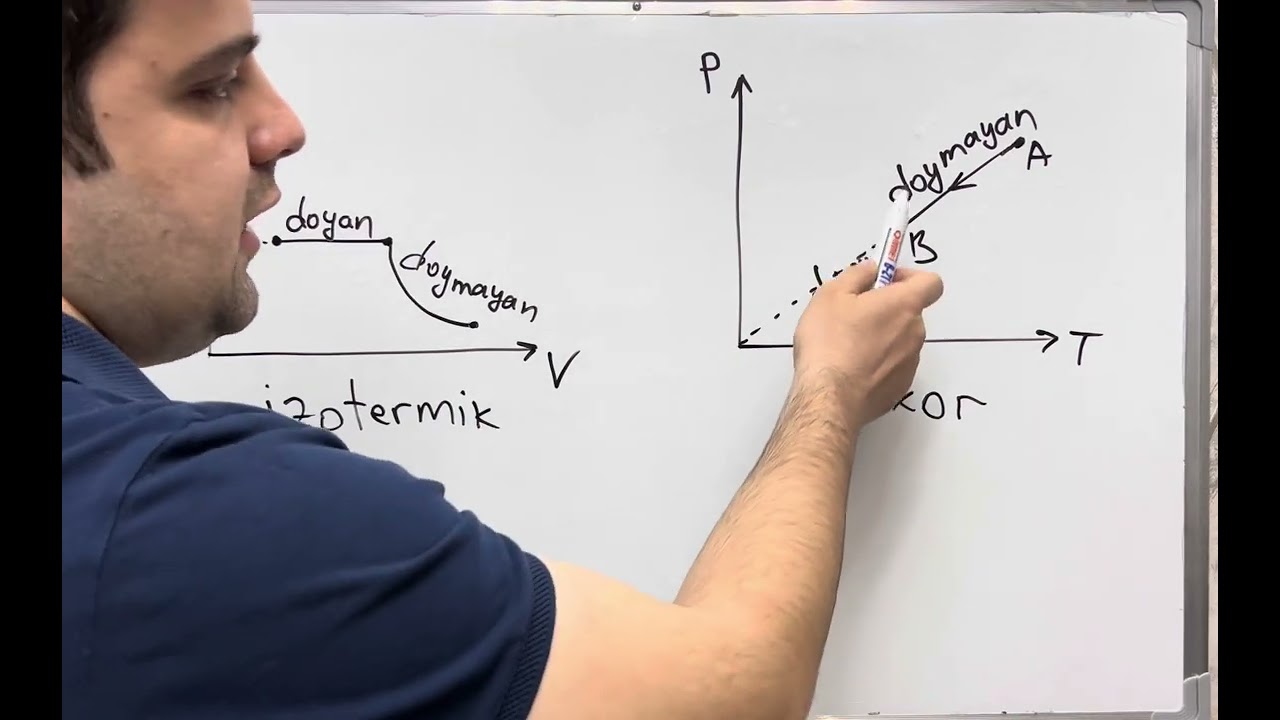 doyan
doymayan
V
izotermik
P
doymayan
A
B
T